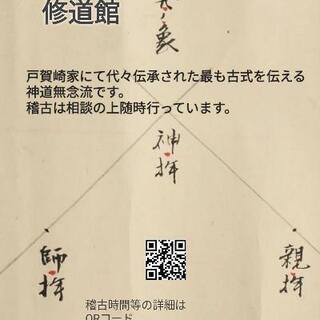 修道館
象
戸賀崎家にて代々伝承された最も古式を伝える
神道無念流です。
稽古は相談の上随時行っています。
神拝
師拝
親拝
稽古時間等の詳細は
QRコード